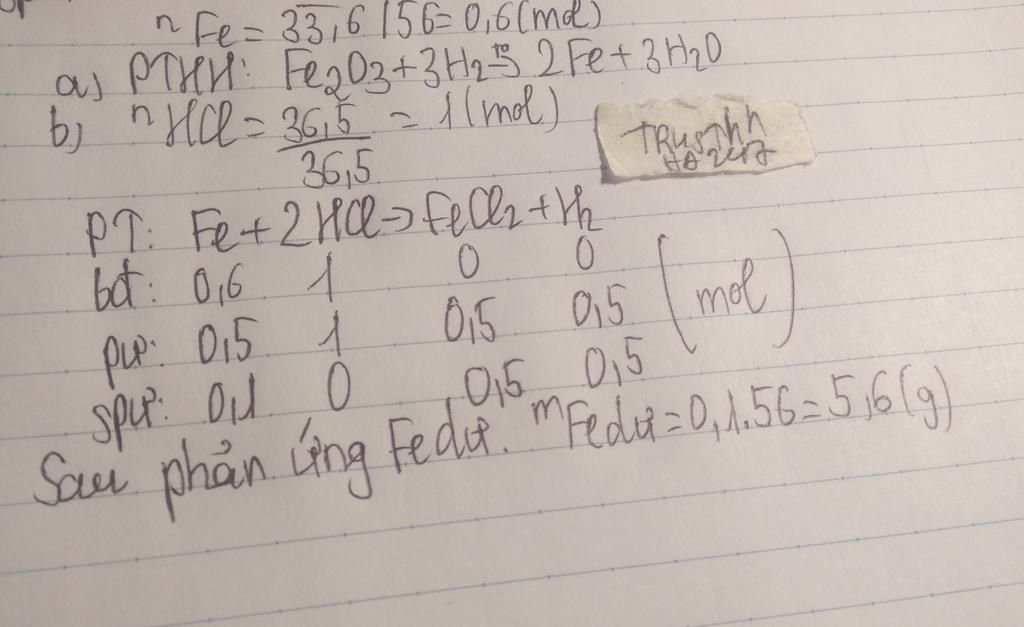 nFe = 33,6/56=0,6(mol)
a) PTHH: Fe2O3+3H2 to→ 2Fe+3H2O
b) nHCl = 36,5/36,5 = 1(mol)
TRUSThh
PT: Fe+2HCl→FeCl2+H2
bđ: 0,6 1 0 0 (mol)
pư: 0,5 1 0,5 0,5
spư: 0,1 0 0,5 0,5
Sau phản ứng Fe dư. mFe dư=0,1.56=5,6(g)